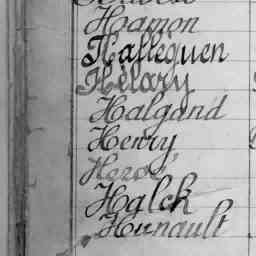 Hamon
Hallequen
Hélary
Halgand
Henry
Heros
Halck
Hunault